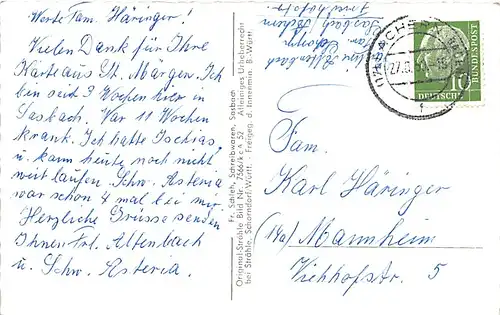 Werte Fam. Häringer!
Vielen Dank für Ihre
Karte aus St. Märgen. Ich
bin seit 3 Wochen hier in
Sasbach. War 11 Wochen
krank. Ich hatte Ischias
u. kann heute noch nicht
weit laufen. Schw. Asteria
war schon 4 mal bei mir.
Herzliche Grüsse senden
Ihnen Frl. Altenbach
u. Schw. Asteria.
Fr. Schleh, Schreibwaren, Sasbach
Original-Strähle Bild Nr. 7566/kc A 52 Alleiniges Urheberrecht
bei Strähle, Schorndorf/Württ. Freigg. d. Innenmin. B.-Württ.
Altenbach
Sasbach
ACHERN
27.
DEUTSCHE
BUNDESPOST
10
Fam.
Karl Häringer
(17a) Mannheim
Viehhofstr. 5